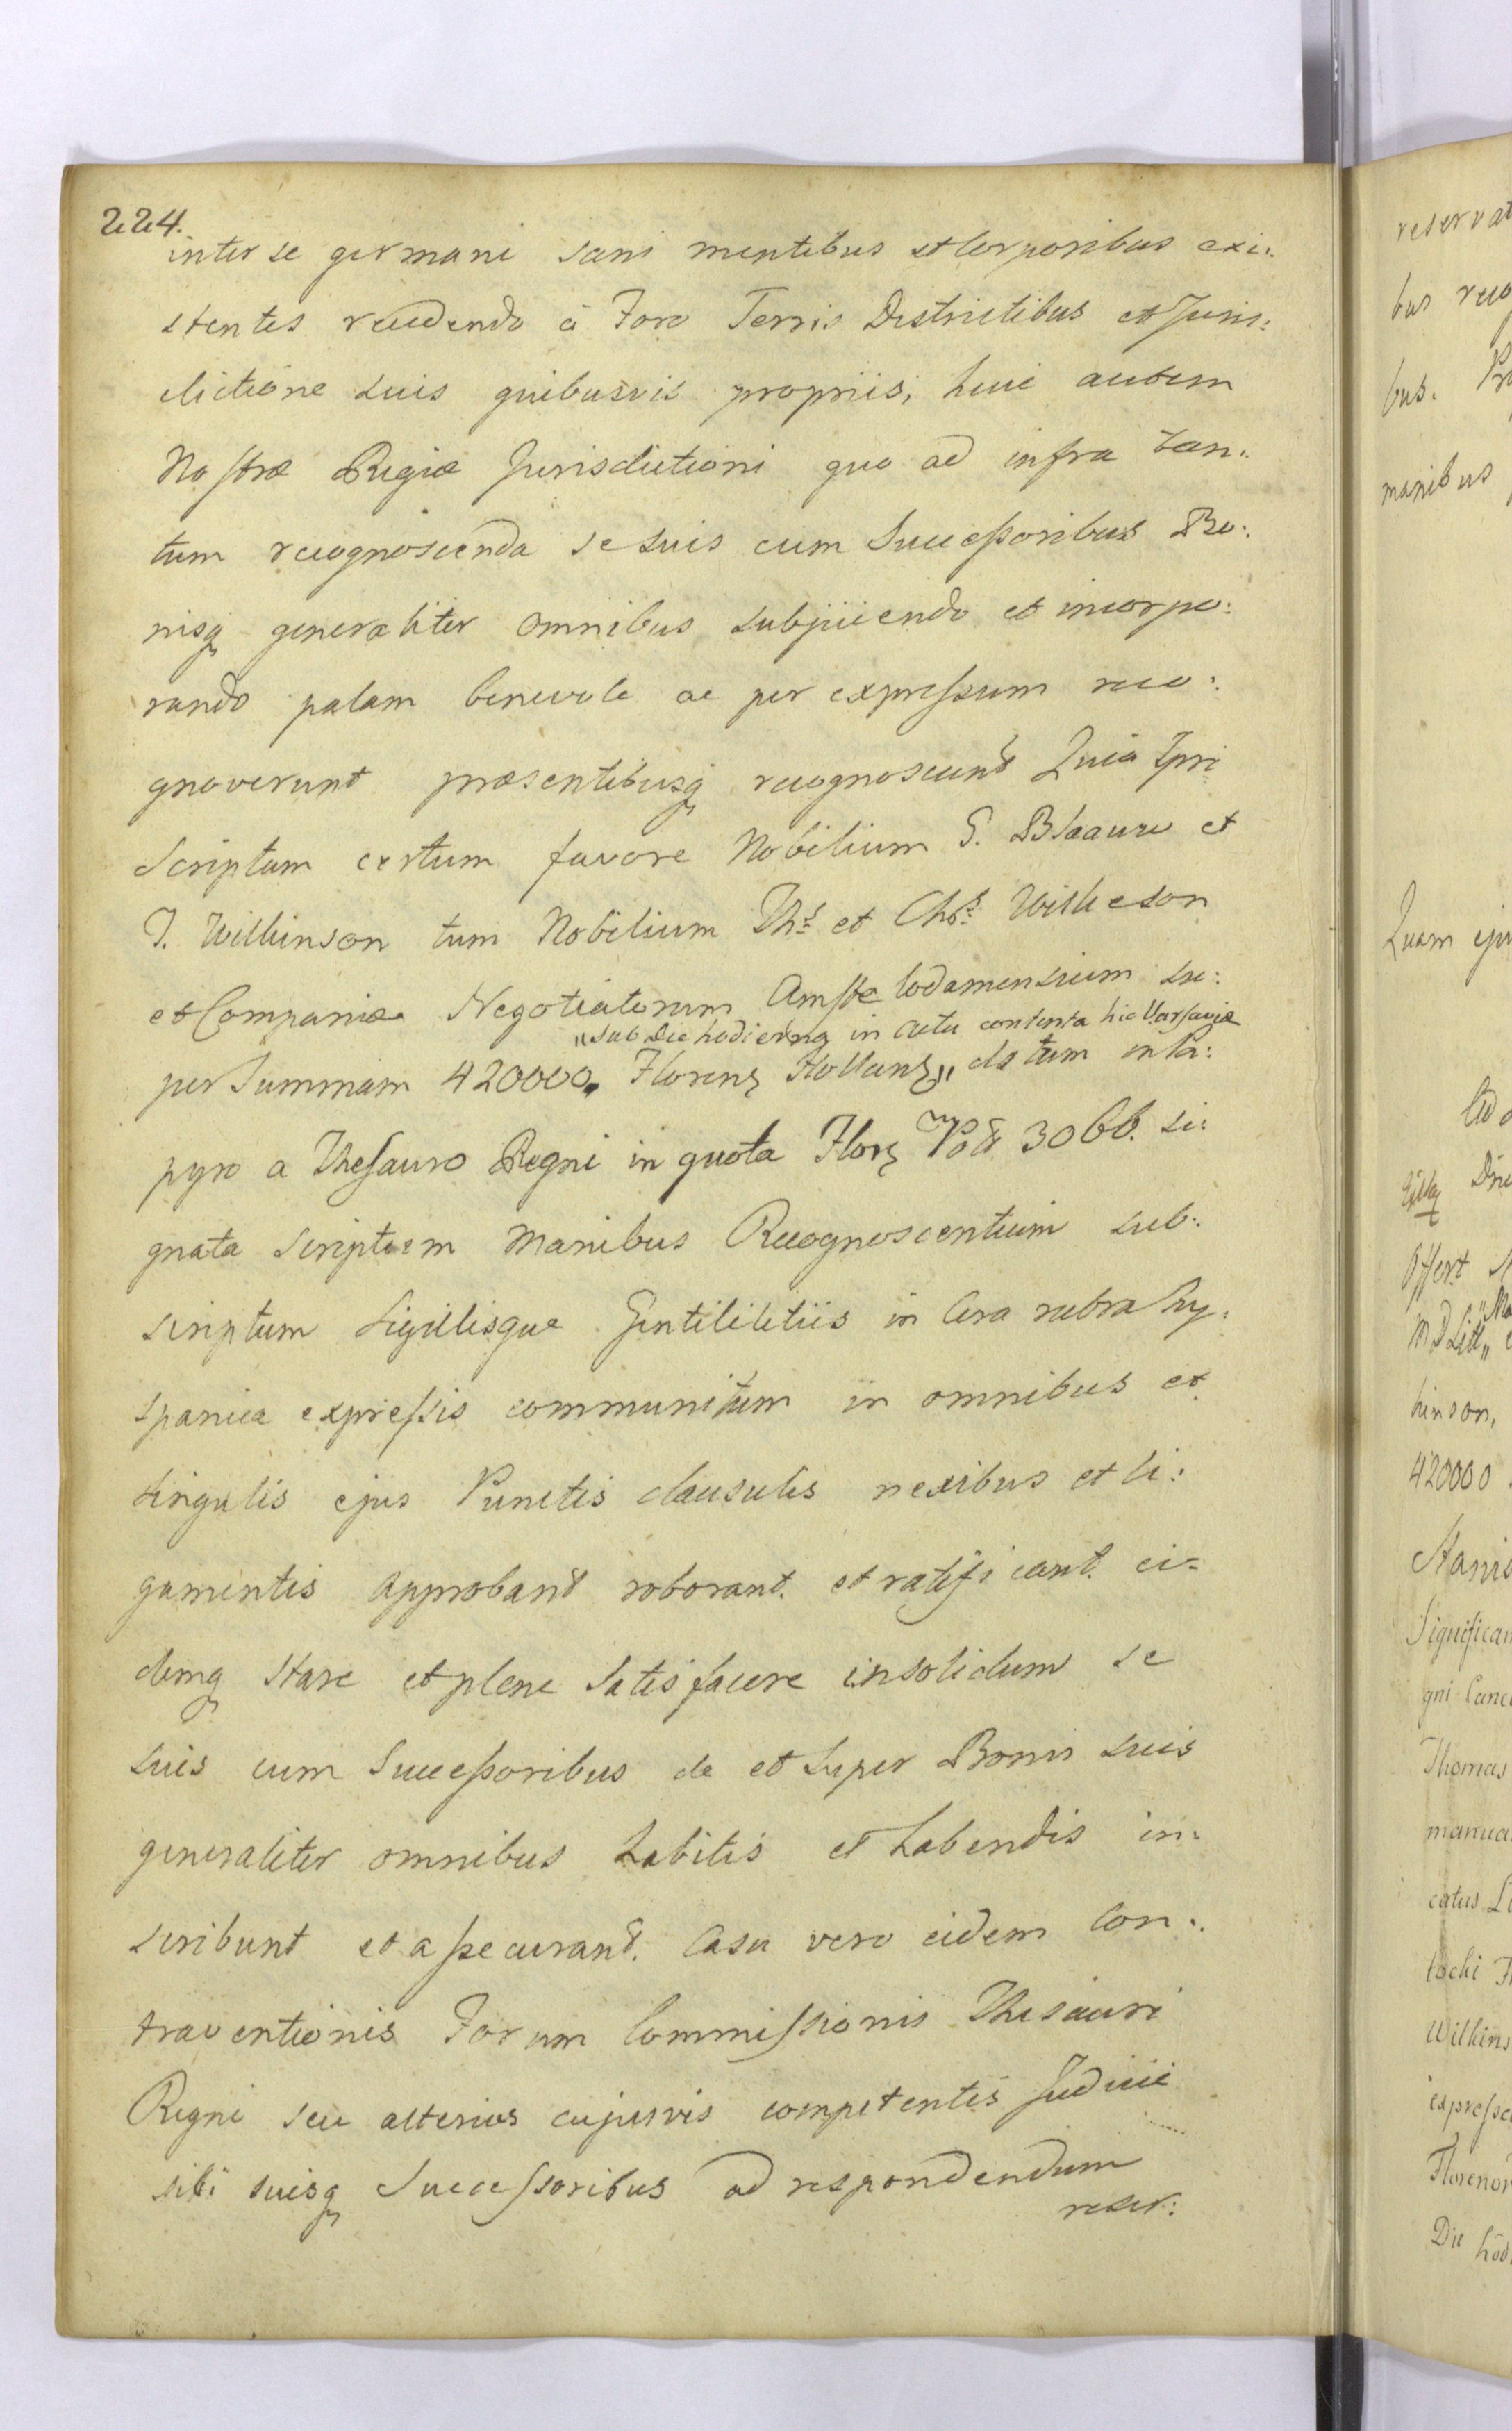 224.
inter se germani sani mentibus et Corporibus exi:
stentes recedendo à Foro Terris Districtibus et Juris:
dictione suis quibusvis propriis, huic autem
Nostræ Regiæ Jurisdictioni quo ad infra tan:
tum recognoscenda se suis cum Successoribus Bo:
nisq generaliter omnibus subjiciendo et incorpo:
rando palam benevole ac per expressum reco:
gnoverunt præsentibusq recognoscunt Quia Ipsi
Scriptum certum favore Nobilium G. Blaauw et
J. Wilkinson tum Nobilium Ths. et Chrs. Wilkeson
et Compania Negotiatorum Amstelodamensium su:
„sub Die hodierna in actu contenta hic Varsaviæ
per Summam 420000. Floren Hollan„ datum in Pa:
pyro a Thesauro Regni in quota Flor Pol 30 bb. si:
gnata scriptum Manibus Recognoscentium sub:
scriptum Sigillisque Gentilitiis in Cera rubra hy:
spanica expressis communitum in omnibus et
singulis ejus Punctis clausulis nexibus et li:
gamentis approbant roborant. et ratificant. ei=
demq stare et plene satisfacere insolidum se
suis cum Successoribus de et super Bonis suis
generaliter omnibus habitis et habendis in:
scribunt et assecurant. Casu vero eidem Con:
traventionis Forum Commissionis Thesauri
Regni seu alterius cujusvis competentis Judicii
sibi suisq Successoribus ad respondendum
reser:
reservat
bus reco
bus.
manibus
Quam
Offert
hinson,
420000
Stanis
Significan
gni Canc
Thomas
manua
catus
tocki
Wilkins
expresse
Florenor
Die hod